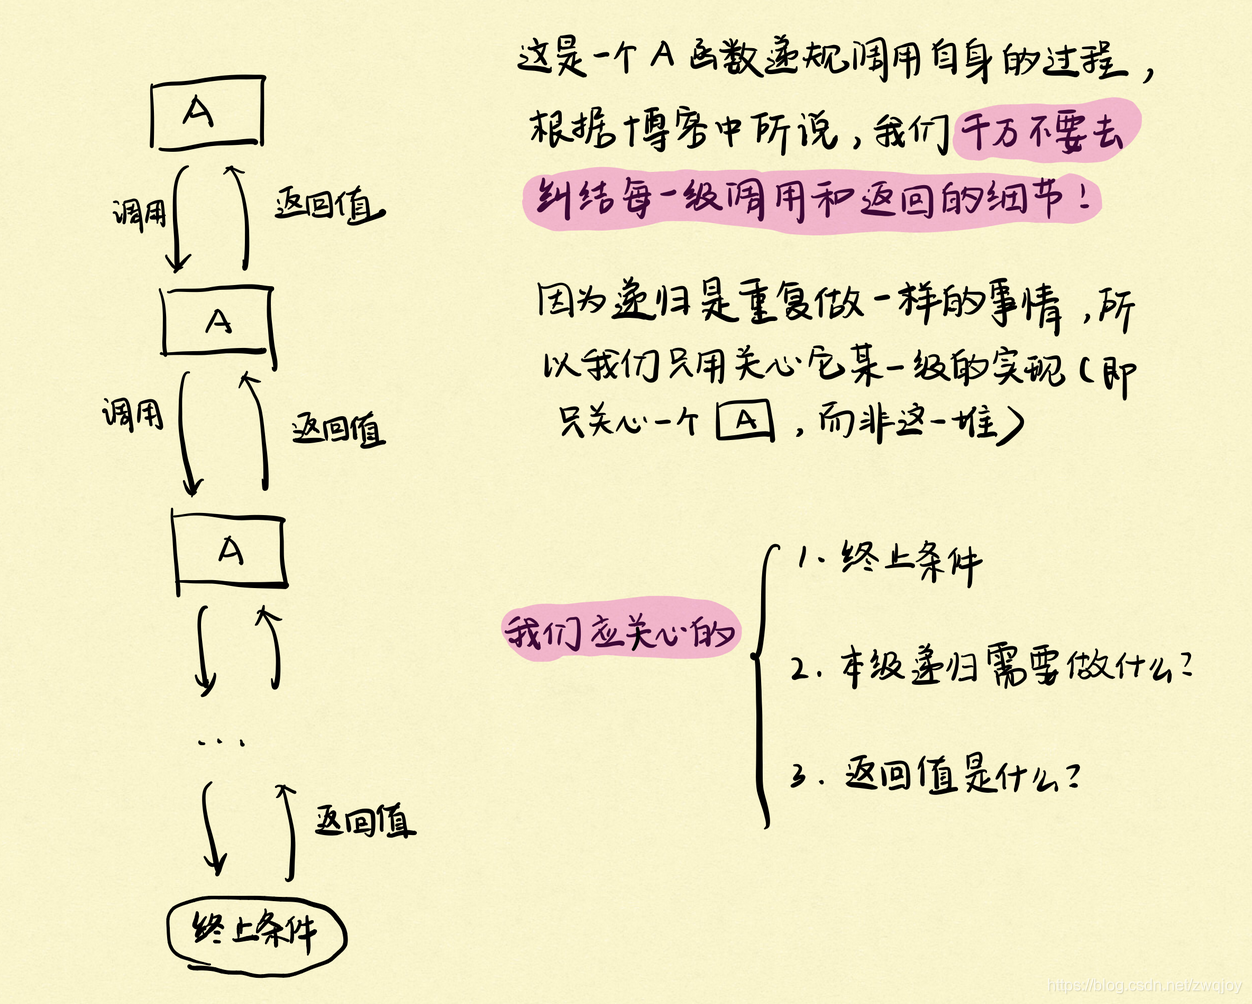 这是一个 A 函数递规调用自身的过程，
根据博客中所说，我们千万不要去
纠结每一级调用和返回的细节！
因为递归是重复做一样的事情，所
以我们只用关心它某一级的实现（即
只关心一个 A ，而非这一堆）
我们应关心的
1. 终止条件
2. 本级递归需要做什么？
3. 返回值是什么？
A
调用
返回值
A
调用
返回值
A
...
返回值
终止条件
https://blog.csdn.net/zwqjoy